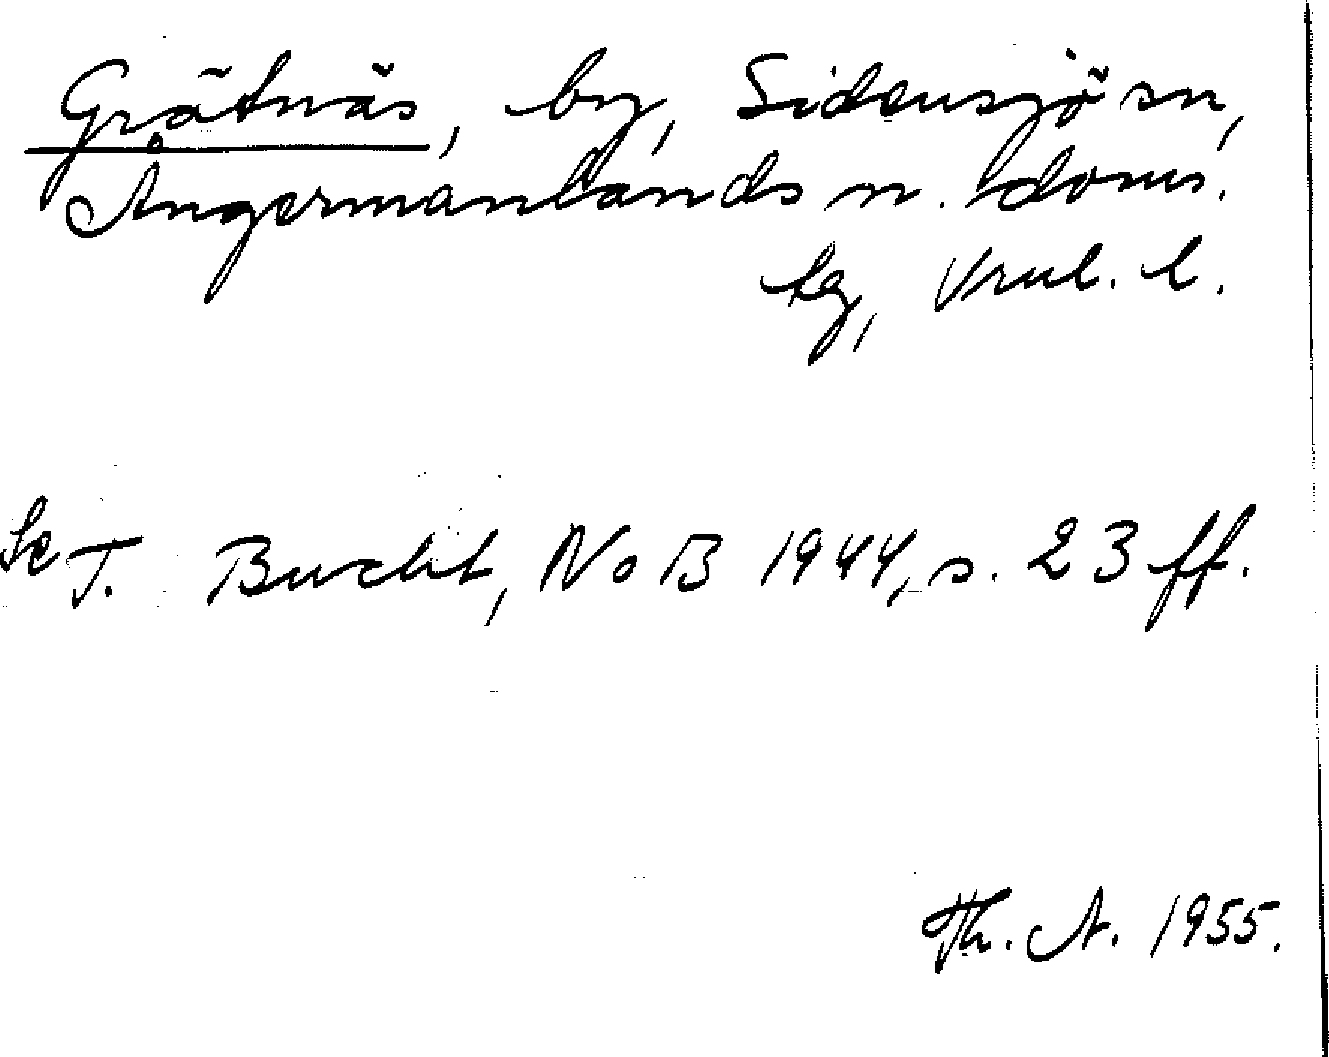 Grätnäs, by, Sidensjö sn,
Ångermanlands n. doms.
tg, Vnl. l.
Se T. Bucht, NoB 1944, s. 23 ff.
Th. A. 1955.